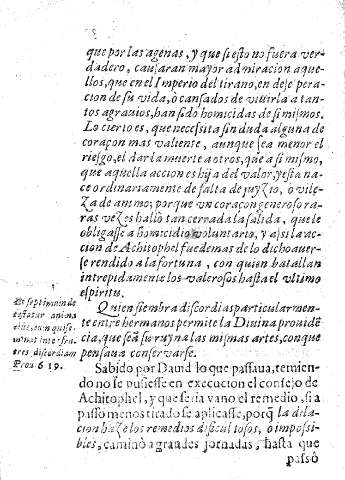 que por las agenas, y que si esto no fuera ver-
dadero, causaran mayor admiracion aque-
llos, que en el Imperio del tirano, en desepera
cion de su vida, ò cansados de viuirla a tan-
tos agrauios, han sido homicidas de si mismos.
Lo cierto es, que necessita sin duda alguna de
coraçon mas valiente, aunque sea menor el
riesgo, el dar la muerte a otros, que a si mismo,
que aquella accion es hija del valor, y esta na-
ce ordinariamente de falta de juyzio, ò vile-
za de animo; porque vn coraçon generoso ra-
ras vezes hallò tan cerrada la salida, que le
obligasse a homicidio voluntario, y assi la ac-
cion de Achitophel fue demas de lo dicho auer-
se rendido a la fortuna, con quien batallan
intrepidamente los valerosos hasta el vltimo
espiritu.
Quien siembra discordias particularmen-
te entre hermanos permite la Diuina prouidẽ
cia, que sea su ruyna las mismas artes, con que
pensaua conservarse.
Et septimum de
testatur anima
eius, eum qui se-
minat inter fra-
tres discordiam
Prou. 6 19.
Sabido por Dauid lo que passaua, temien-
do no se pusiesse en execucion el consejo de
Achitophel, y que seria vano el remedio, si a
passo menos tirado se aplicasse, porq̃ la dila-
cion haze los remedios dificultosos, ò impossi-
bles, caminò a grandes jornadas, hasta que
passò